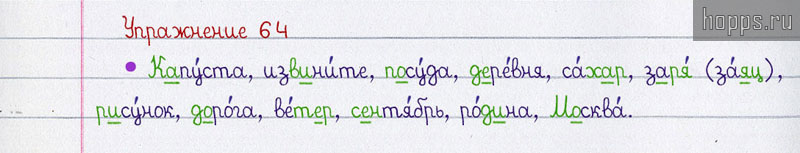 Упражнение 64
hopps.ru
• Капу́ста, извини́те, посу́да, дере́вня, са́хар, заря́ (за́яц),
рису́нок, доро́га, ве́тер, сентя́брь, ро́дина, Москва́.